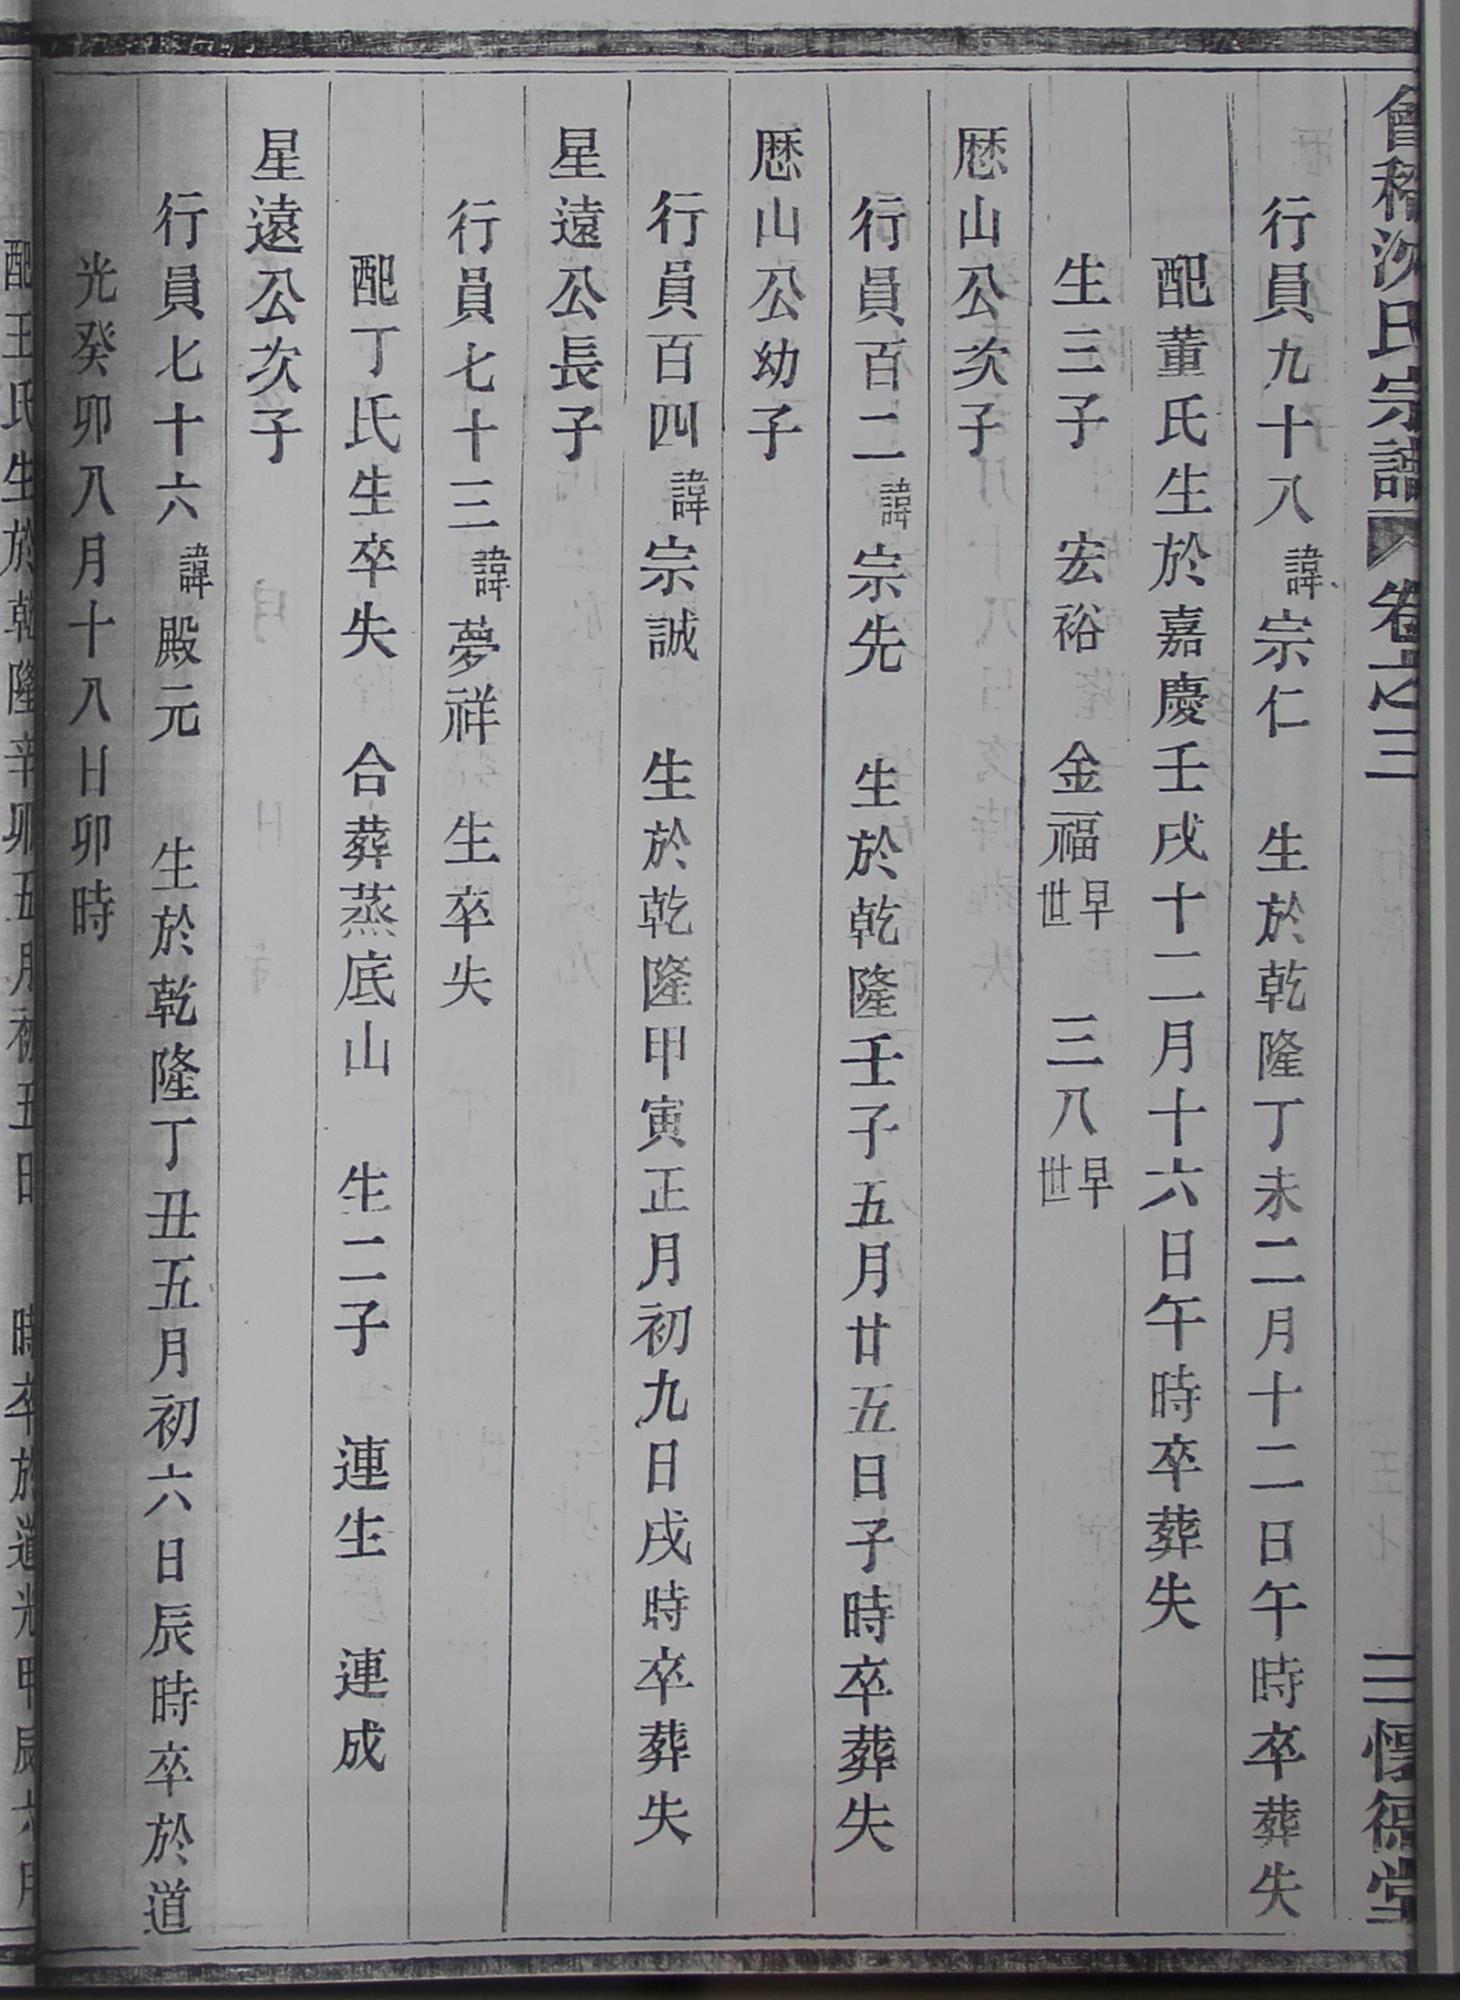 會稽沈氏宗譜 卷之三 二 惇德堂
行員九十八諱宗仁 生於乾隆丁未二月十二日午時卒葬失
配董氏生於嘉慶壬戌十二月十六日午時卒葬失
生三子 宏裕 金福早世 三八早世
厯山公次子
行員百二諱宗先 生於乾隆壬子五月廿五日子時卒葬失
厯山公幼子
行員百四諱宗誠 生於乾隆甲寅正月初九日戌時卒葬失
星遠公長子
行員七十三諱夢祥 生卒失
配丁氏生卒失 合葬蒸底山 生二子 連生 連成
星遠公次子
行員七十六諱殿元 生於乾隆丁丑五月初六日辰時卒於道
光癸卯八月十八日卯時
配王氏生於乾隆辛卯五月初五日 時卒於道光甲辰六月